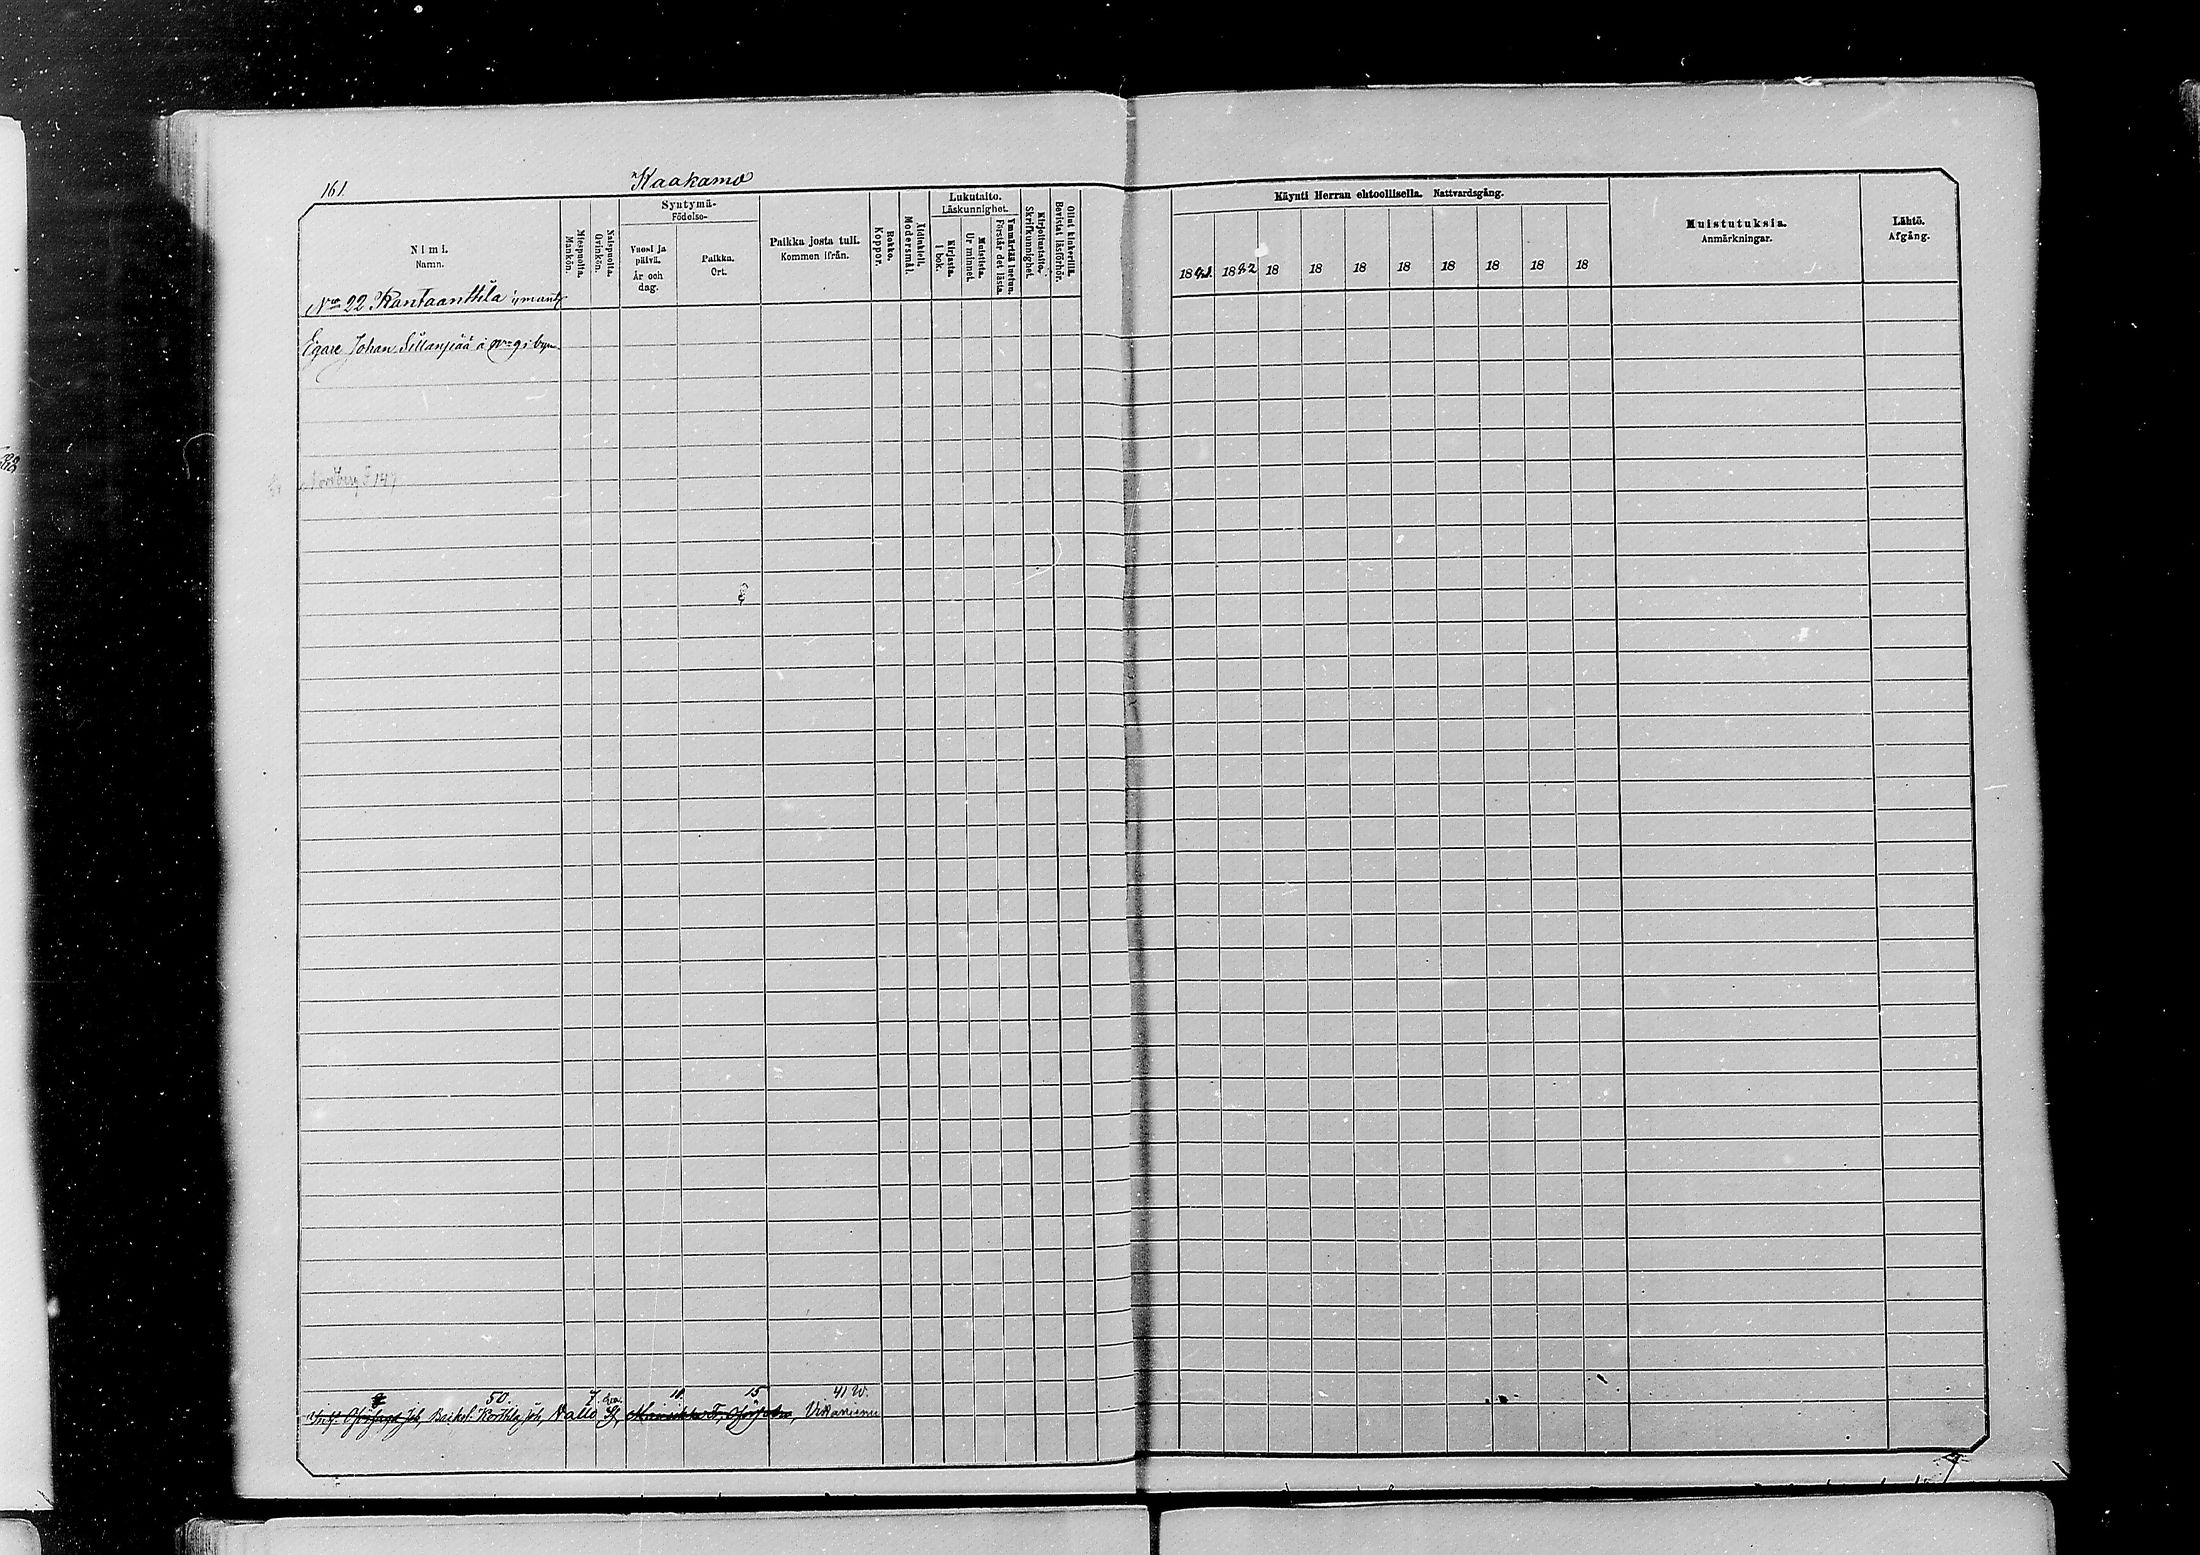 161.
Kaakamo
Nimi.
Namn.
Miespuolta.
Mankön.
Naispuolta.
Qvinkön.
Syntymä-
Födelse-
Vuosi ja päivä.
År och dag.
Paikka.
Ort.
Paikka josta tuli.
Kommen ifrån.
Rokko.
Koppor.
Äidinkieli.
Modersmål.
Lukutaito.
Läskunnighet.
Kirjasta.
I bok.
Muistista.
Ur minnet.
Ymmärtää luetun.
Förstår det lästa.
Kirjoitustaito.
Skrifkunnighet.
Ollut kinkerillä.
Bevistat läsförhör.
Käynti Herran ehtoollisella. Nattvardsgång.
1881 1882 18 18 18 18 18 18 18 18
Muistutuksia.
Anmärkningar.
Lähtö.
Afgång.
No 22 Rantaanttila
Egare Johan Sillanpää å No 9 i byn
147
50. 7 10. 15 41 W.
Kallo